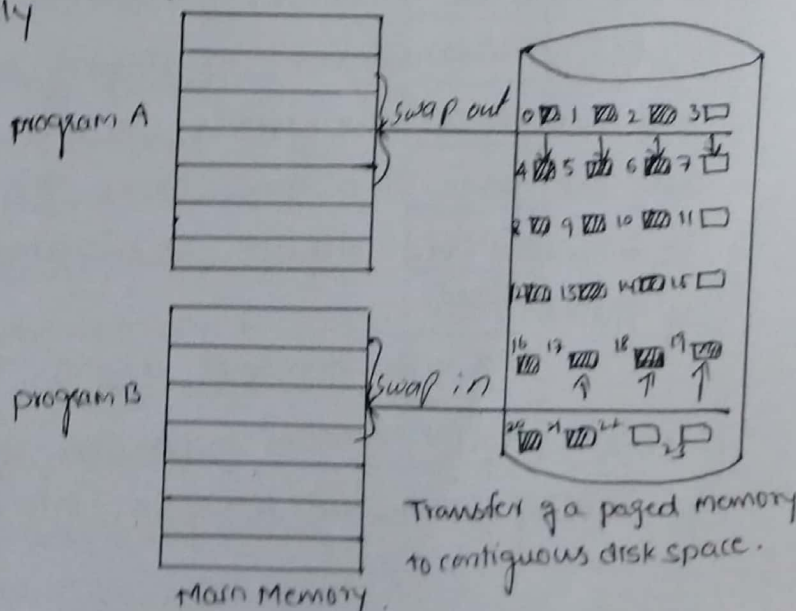 ly
program A
swap out
0 1 2 3
4 5 6 7
8 9 10 11
12 13 14 15
16 17 18 19
program B
swap in
20 21 22 23
Transfer of a paged memory
to contiguous disk space.
Main Memory